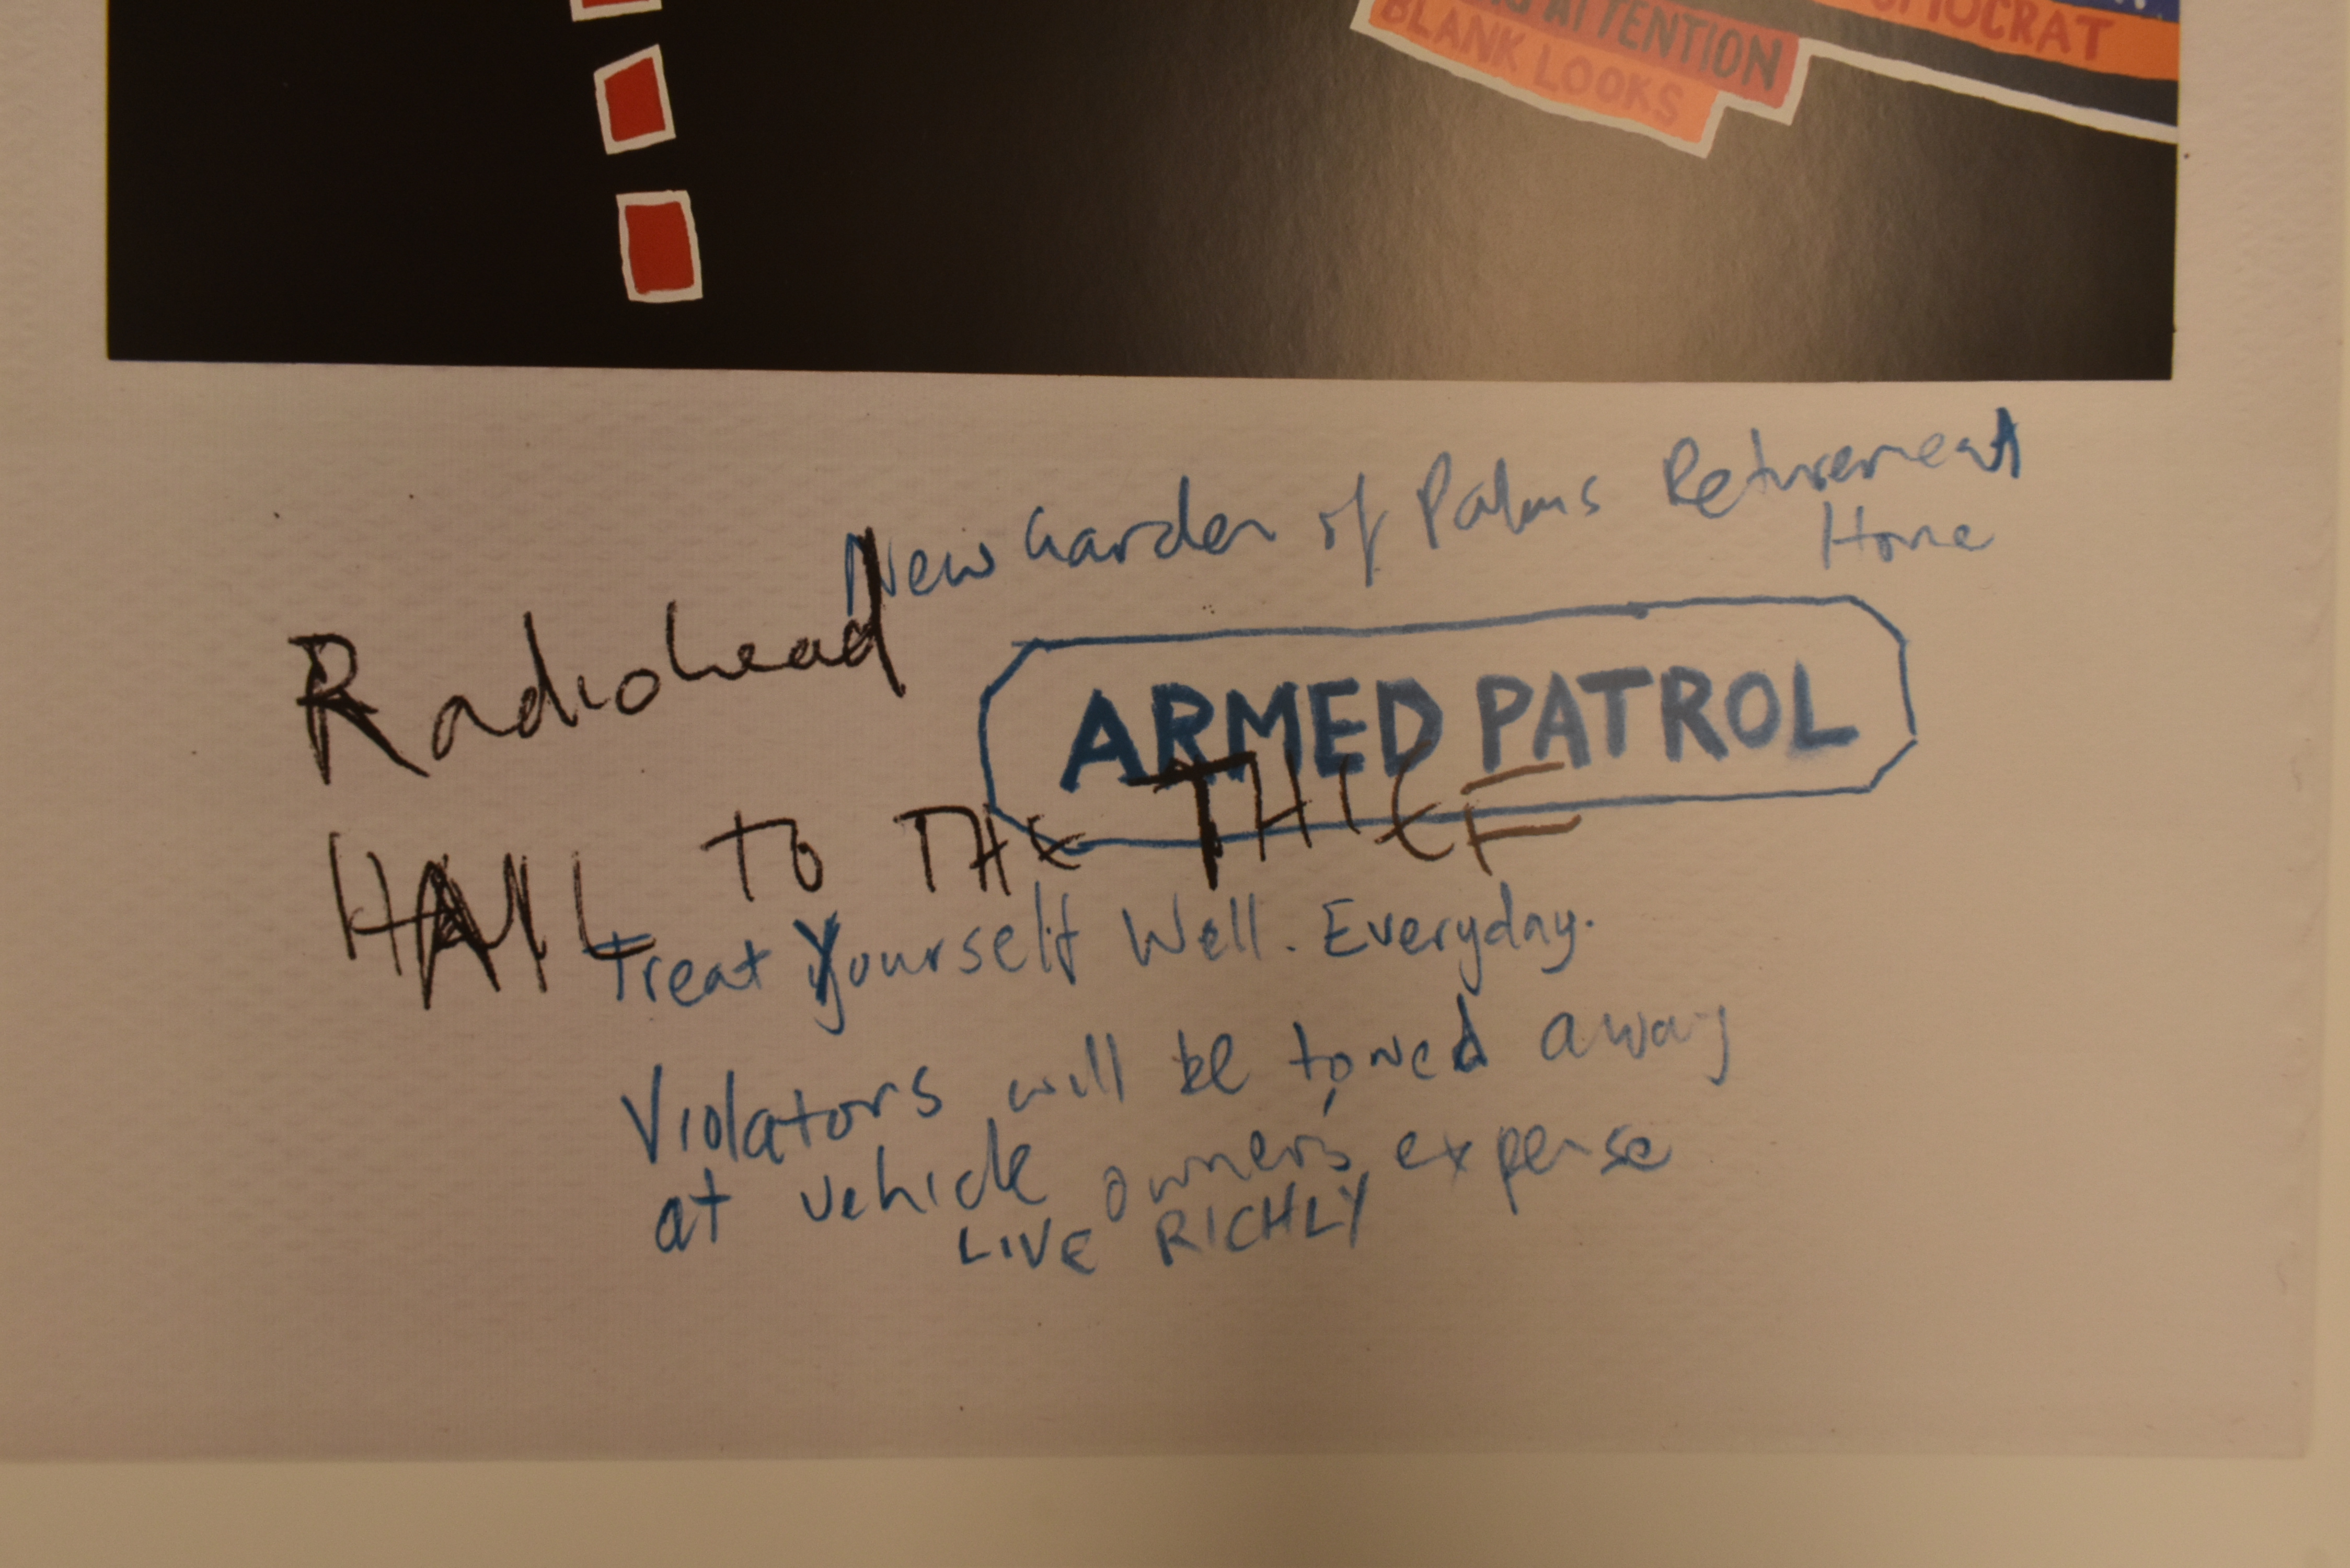 ATTENTION
BLANK LOOKS
New Garden of Palms Retirement
Home
Radiohead
ARMED PATROL
HAIL TO THE THIEF
Treat Yourself Well. Everyday.
Violators will be towed away
at vehicle owner's expense
LIVE RICHLY